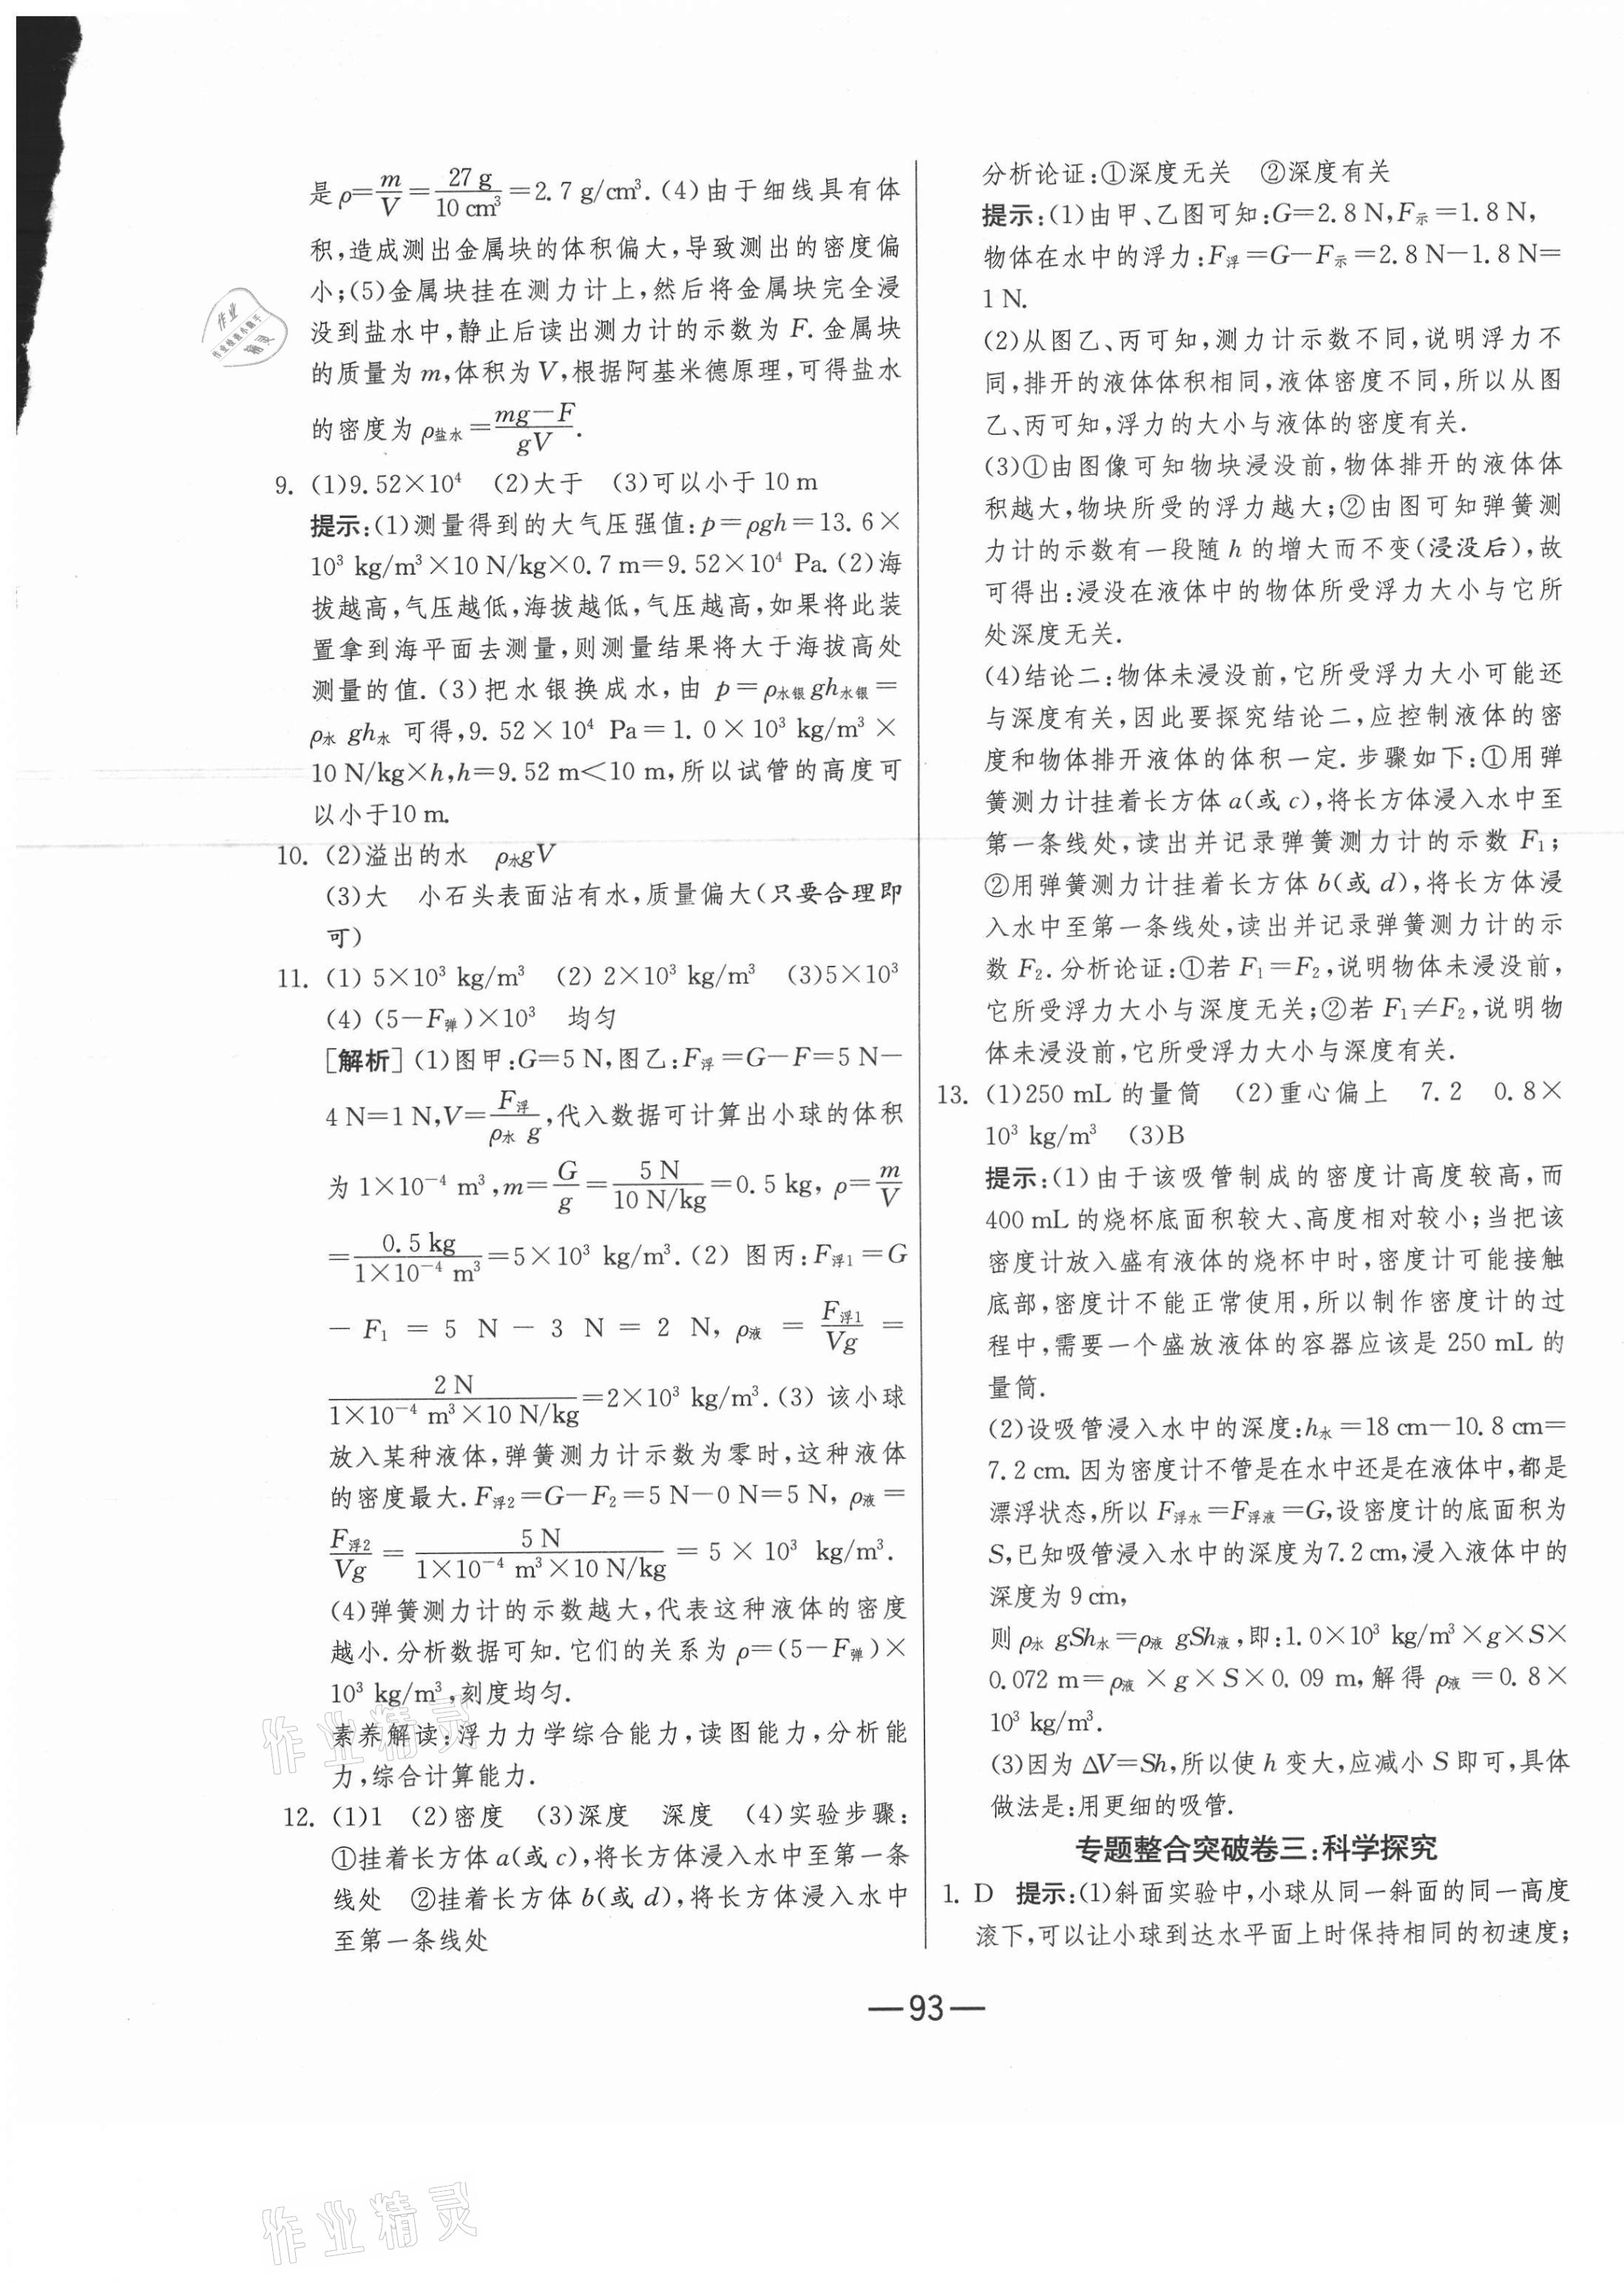 是ρ=m/V=27 g/10 cm³=2.7 g/cm³.(4)由于细线具有体
积,造成测出金属块的体积偏大,导致测出的密度偏
小;(5)金属块挂在测力计上,然后将金属块完全浸
没到盐水中,静止后读出测力计的示数为 F.金属块
的质量为 m,体积为 V,根据阿基米德原理,可得盐水
的密度为 ρ盐水=(mg-F)/gV.
9. (1)9.52×10⁴ (2)大于 (3)可以小于 10 m
提示:(1)测量得到的大气压强值:p=ρgh=13.6×
10³ kg/m³×10 N/kg×0.7 m=9.52×10⁴ Pa.(2)海
拔越高,气压越低,海拔越低,气压越高,如果将此装
置拿到海平面去测量,则测量结果将大于海拔高处
测量的值.(3)把水银换成水,由 p=ρ水银gh水银=
ρ水gh水 可得,9.52×10⁴ Pa=1.0×10³ kg/m³×
10 N/kg×h,h=9.52 m<10 m,所以试管的高度可
以小于10 m.
10. (2)溢出的水 ρ水gV
(3)大 小石头表面沾有水,质量偏大(只要合理即
可)
11. (1) 5×10³ kg/m³ (2) 2×10³ kg/m³ (3)5×10³
(4) (5-F弹)×10³ 均匀
[解析](1)图甲:G=5 N,图乙:F浮=G-F=5 N-
4 N=1 N,V=F浮/ρ水g,代入数据可计算出小球的体积
为 1×10⁻⁴ m³,m=G/g=5 N/10 N/kg=0.5 kg, ρ=m/V
=0.5 kg/1×10⁻⁴ m³=5×10³ kg/m³.(2) 图丙:F浮1=G
-F₁=5 N-3 N=2 N, ρ液=F浮1/Vg=
2 N/1×10⁻⁴ m³×10 N/kg=2×10³ kg/m³.(3) 该小球
放入某种液体,弹簧测力计示数为零时,这种液体
的密度最大.F浮2=G-F₂=5 N-0 N=5 N, ρ液=
F浮2/Vg=5 N/1×10⁻⁴ m³×10 N/kg=5×10³ kg/m³.
(4)弹簧测力计的示数越大,代表这种液体的密度
越小.分析数据可知.它们的关系为 ρ=(5-F弹)×
10³ kg/m³,刻度均匀.
素养解读:浮力力学综合能力,读图能力,分析能
力,综合计算能力.
12. (1)1 (2)密度 (3)深度 深度 (4)实验步骤:
①挂着长方体 a(或 c),将长方体浸入水中至第一条
线处 ②挂着长方体 b(或 d),将长方体浸入水中
至第一条线处
分析论证:①深度无关 ②深度有关
提示:(1)由甲、乙图可知:G=2.8 N,F示=1.8 N,
物体在水中的浮力:F浮=G-F示=2.8 N-1.8 N=
1 N.
(2)从图乙、丙可知,测力计示数不同,说明浮力不
同,排开的液体体积相同,液体密度不同,所以从图
乙、丙可知,浮力的大小与液体的密度有关.
(3)①由图像可知物块浸没前,物体排开的液体体
积越大,物块所受的浮力越大;②由图可知弹簧测
力计的示数有一段随 h 的增大而不变(浸没后),故
可得出:浸没在液体中的物体所受浮力大小与它所
处深度无关.
(4)结论二:物体未浸没前,它所受浮力大小可能还
与深度有关,因此要探究结论二,应控制液体的密
度和物体排开液体的体积一定.步骤如下:①用弹
簧测力计挂着长方体 a(或 c),将长方体浸入水中至
第一条线处,读出并记录弹簧测力计的示数 F₁;
②用弹簧测力计挂着长方体 b(或 d),将长方体浸
入水中至第一条线处,读出并记录弹簧测力计的示
数 F₂.分析论证:①若 F₁=F₂,说明物体未浸没前,
它所受浮力大小与深度无关;②若 F₁≠F₂,说明物
体未浸没前,它所受浮力大小与深度有关.
13. (1)250 mL 的量筒 (2)重心偏上 7.2 0.8×
10³ kg/m³ (3)B
提示:(1)由于该吸管制成的密度计高度较高,而
400 mL 的烧杯底面积较大、高度相对较小;当把该
密度计放入盛有液体的烧杯中时,密度计可能接触
底部,密度计不能正常使用,所以制作密度计的过
程中,需要一个盛放液体的容器应该是 250 mL 的
量筒.
(2)设吸管浸入水中的深度:h水=18 cm-10.8 cm=
7.2 cm. 因为密度计不管是在水中还是在液体中,都是
漂浮状态,所以 F浮水=F浮液=G,设密度计的底面积为
S,已知吸管浸入水中的深度为7.2 cm,浸入液体中的
深度为 9 cm,
则 ρ水gSh水=ρ液gSh液,即:1.0×10³ kg/m³×g×S×
0.072 m=ρ液×g×S×0.09 m,解得 ρ液=0.8×
10³ kg/m³.
(3)因为 ΔV=Sh,所以使 h 变大,应减小 S 即可,具体
做法是:用更细的吸管.
专题整合突破卷三:科学探究
1. D 提示:(1)斜面实验中,小球从同一斜面的同一高度
滚下,可以让小球到达水平面上时保持相同的初速度;
—93—
作业精灵
作业精灵